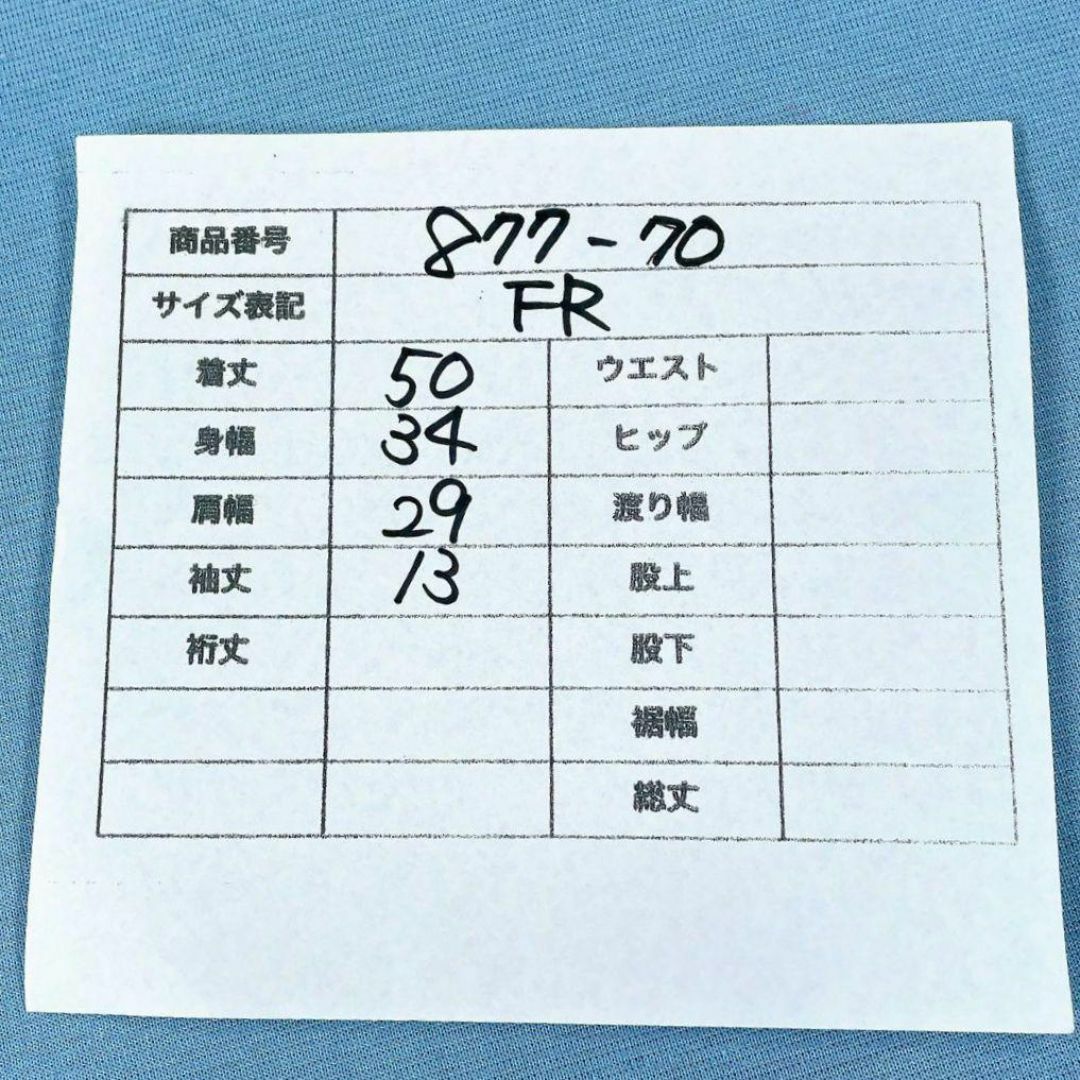 商品番号 877-70
サイズ表記 FR
着丈 50 ウエスト
身幅 34 ヒップ
肩幅 29 渡り幅
袖丈 13 股上
裄丈 股下
裾幅
総丈